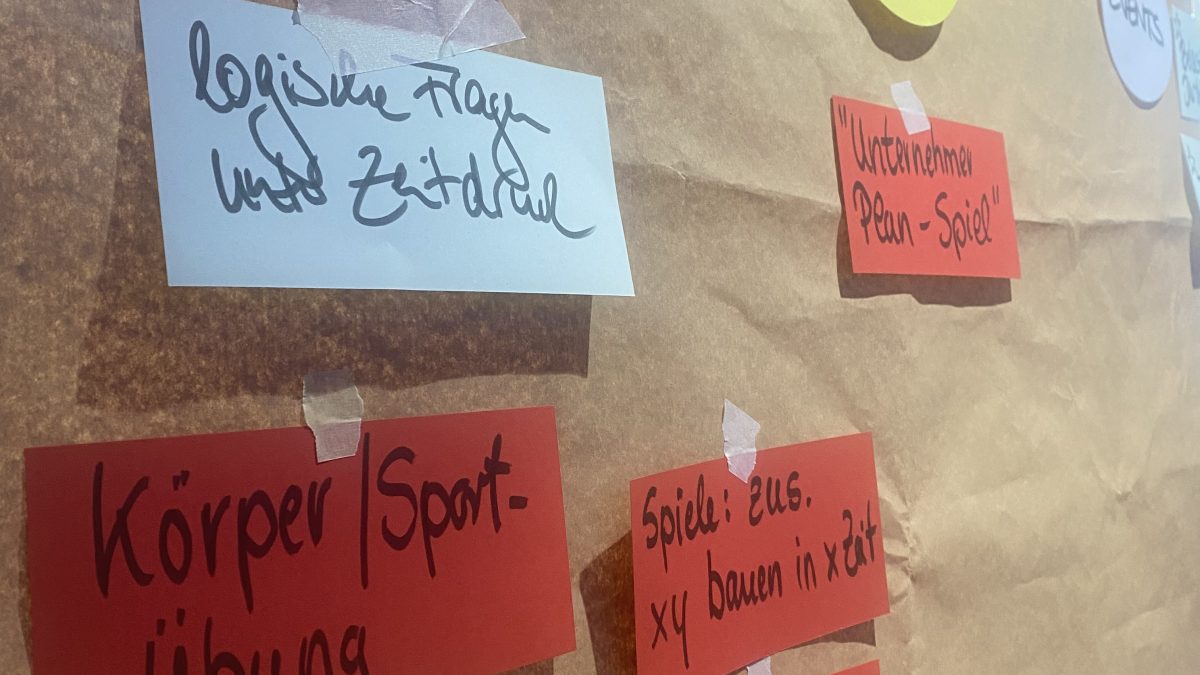 logische Fragen
unter Zeitdruck
"Unternehmer
Plan-Spiel"
EVENTS
Körper/Sport-
übung
Spiele: zus.
xy bauen in x Zeit